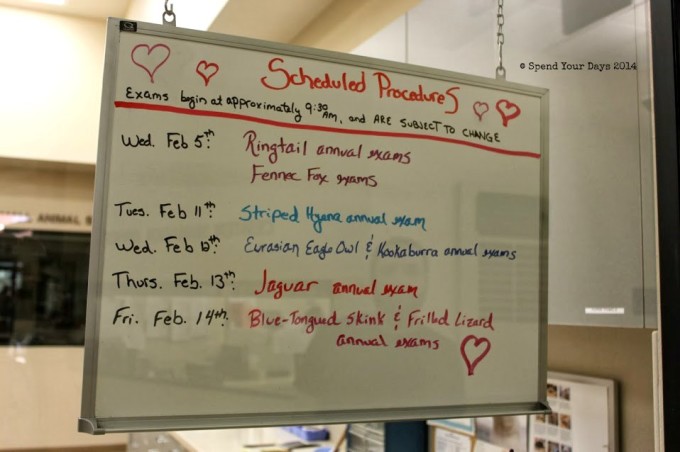 © Spend Your Days 2014
Scheduled Procedures
Exams begin at approximately 9:30 AM, and ARE SUBJECT TO CHANGE
Wed. Feb 5th: Ringtail annual exams
Fennec Fox exams
Tues. Feb 11th: Striped Hyena annual exam
Wed. Feb 12th: Eurasian Eagle Owl & Kookaburra annual exams
Thurs. Feb. 13th: Jaguar annual exam
Fri. Feb. 14th: Blue-Tongued Skink & Frilled Lizard
annual exams
ANIMAL